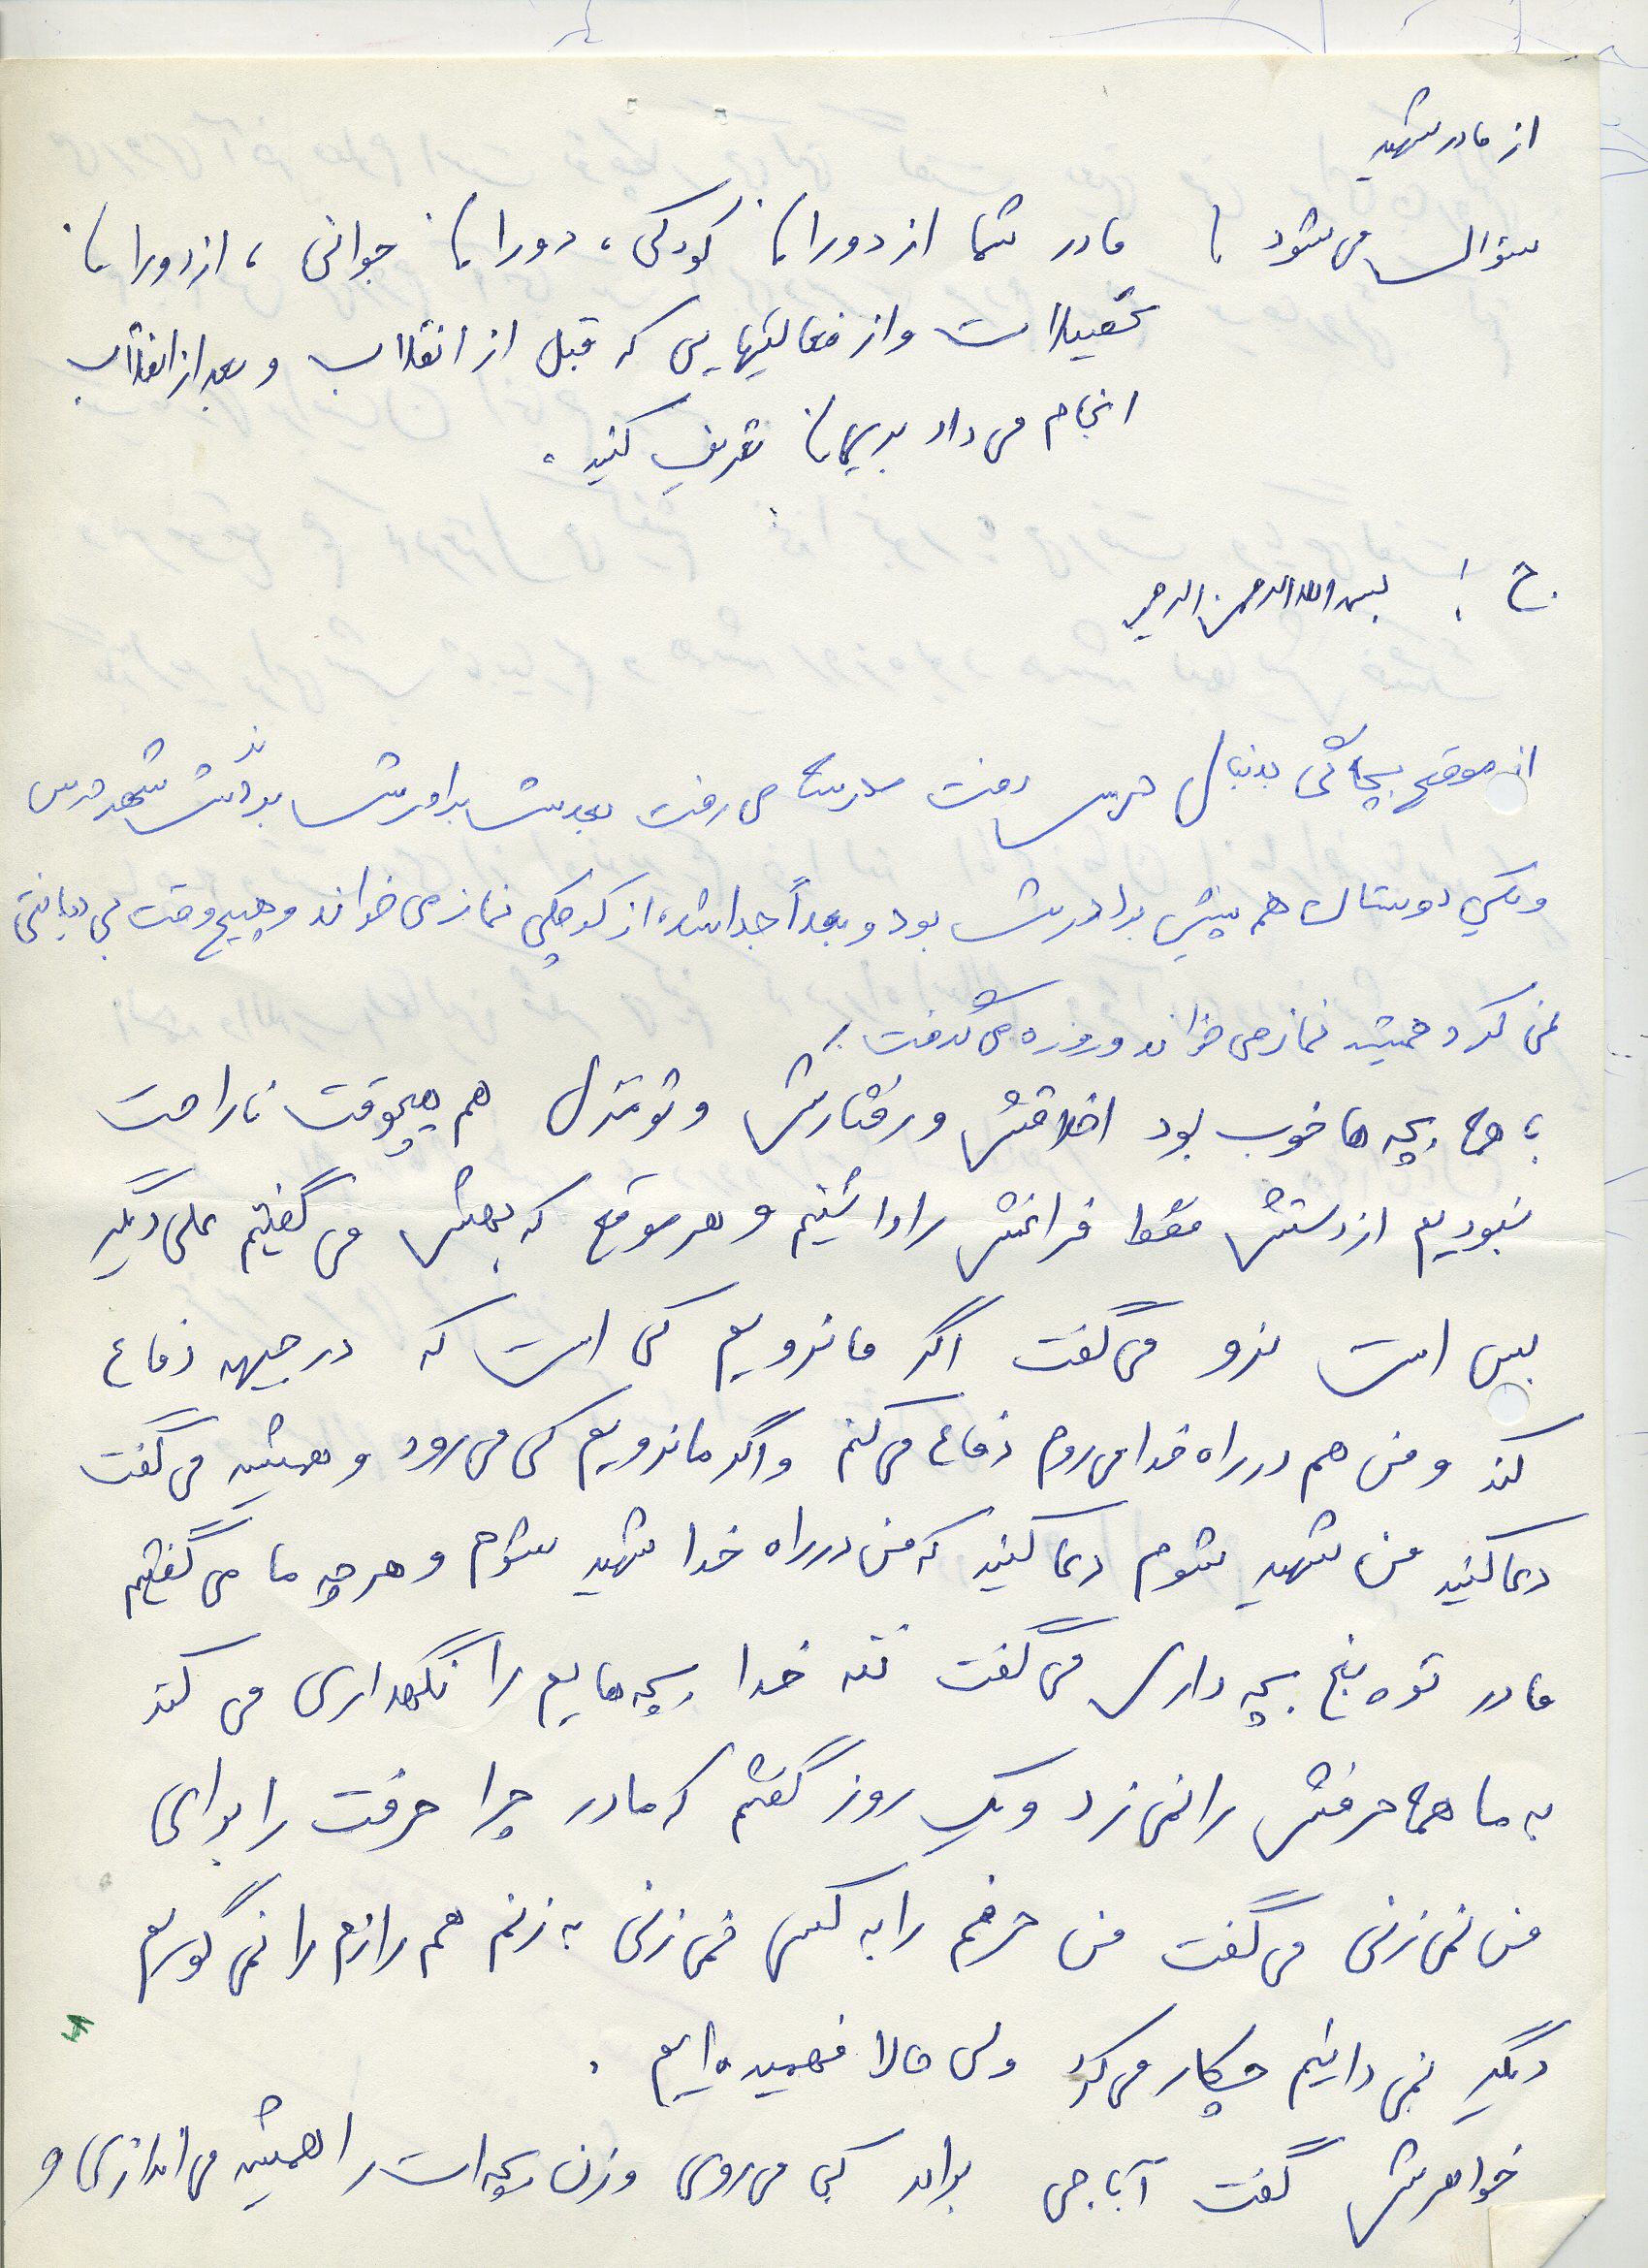 از مادر شهید
سئوال می شود ؛ مادر شما از دوران کودکی ، دوران جوانی ، از دوران
تحصیلات و از فعالیتهایی که قبل از انقلاب و بعد از انقلاب
انجام می داد بریمان تعریف کنید .
ج : بسم الله الرحمن الرحیم
از موقع بچه گی بدنبال درس رفت مدرسه می رفت بعدش برادرش بردش شهر درس
و یکی دو سال هم پیش برادرش بود و بعداً جدا شد، از کوچکی نماز می خواند و هیچ وقت بی دیانتی
نمی کرد همیشه نماز می خواند و روزه اش می گرفت .
با همه بچه ها خوب بود اخلاقش و رفتارش و تو منزل هم هیچوقت ناراحت
نبودیم از دستش فقط فراغش را داشتیم و هر موقع که بهش می گفتیم علی دیگر
بس است نرو می گفت اگر ما نرویم کی است که در جبهه دفاع
کند و من هم در راه خدا می روم دفاع می کنم و اگر ما نرویم کی می رود و همیشه می گفت
دعا کنید من شهید شوم دعا کنید که من در راه خدا شهید شوم و هر چه ما می گفتیم
مادر تو پنج بچه داری می گفت ننه خدا بچه هایم را نگهداری می کند
به ما همه حرفش را نمی زد و یک روز گفتم که مادر چرا حرفت را برای
من نمی زنی می گفت من حرفم را به کسی نمی زنی به زنم هم رازم را نمی گویم
دیگر نمی دانیم چکار می کرد ولی حالا فهمیده ایم .
خواهرش گفت آباجی برادر کجا می روی و زن بچه ات را همیشه می اندازی و